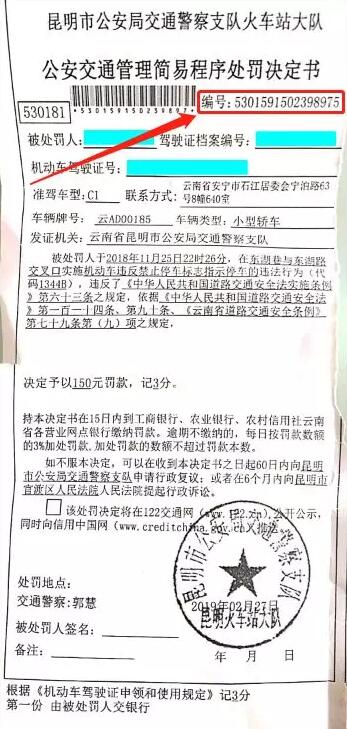 昆明市公安局交通警察支队火车站大队
公安交通管理简易程序处罚决定书
530181
5301591502398975
编号:5301591502398975
被处罚人: 驾驶证档案编号:
机动车驾驶证号:
准驾车型:C1 联系方式:云南省安宁市石江居委会宁泊路63号8幢640室
车辆牌号: 云AD00185 车辆类型:小型轿车
发证机关:云南省昆明市公安局交通警察支队
被处罚人于2018年11月25日22时26分,在东湖巷与东湖路
交叉口实施机动车违反禁止停车标志指示停车的违法行为(代
码1344B),违反了《中华人民共和国道路交通安全法实施条例
》第六十三条之规定,依据《中华人民共和国道路交通安全法》
第一百一十四条、第九十条、《云南省道路交通安全条例》
第七十九条第(九)项之规定,
决定予以150元罚款,记3分。
持本决定书在15日内到工商银行、农业银行、农村信用社云南
省各营业网点银行缴纳罚款。逾期不缴纳的,每日按罚款数额
的3%加处罚款,加处罚款的数额不超过罚款本数。
如不服本决定,可以在收到本决定书之日起60日内向昆明
市公安局交通警察支队申请行政复议;或者在6个月内向昆明
市官渡区人民法院人民法院提起行政诉讼。
该处罚决定将在122交通网(www.122.cn)公开公示,
同时向信用中国网(www.creditchina.gov.cn)推送
处罚地点:
交通警察:郭慧
被处罚人签名:
备注:
昆明市公安局交通警察支队
2019年02月27日
昆明火车站大队
年 月 日
根据《机动车驾驶证申领和使用规定》记3分
第一份 由被处罚人交银行